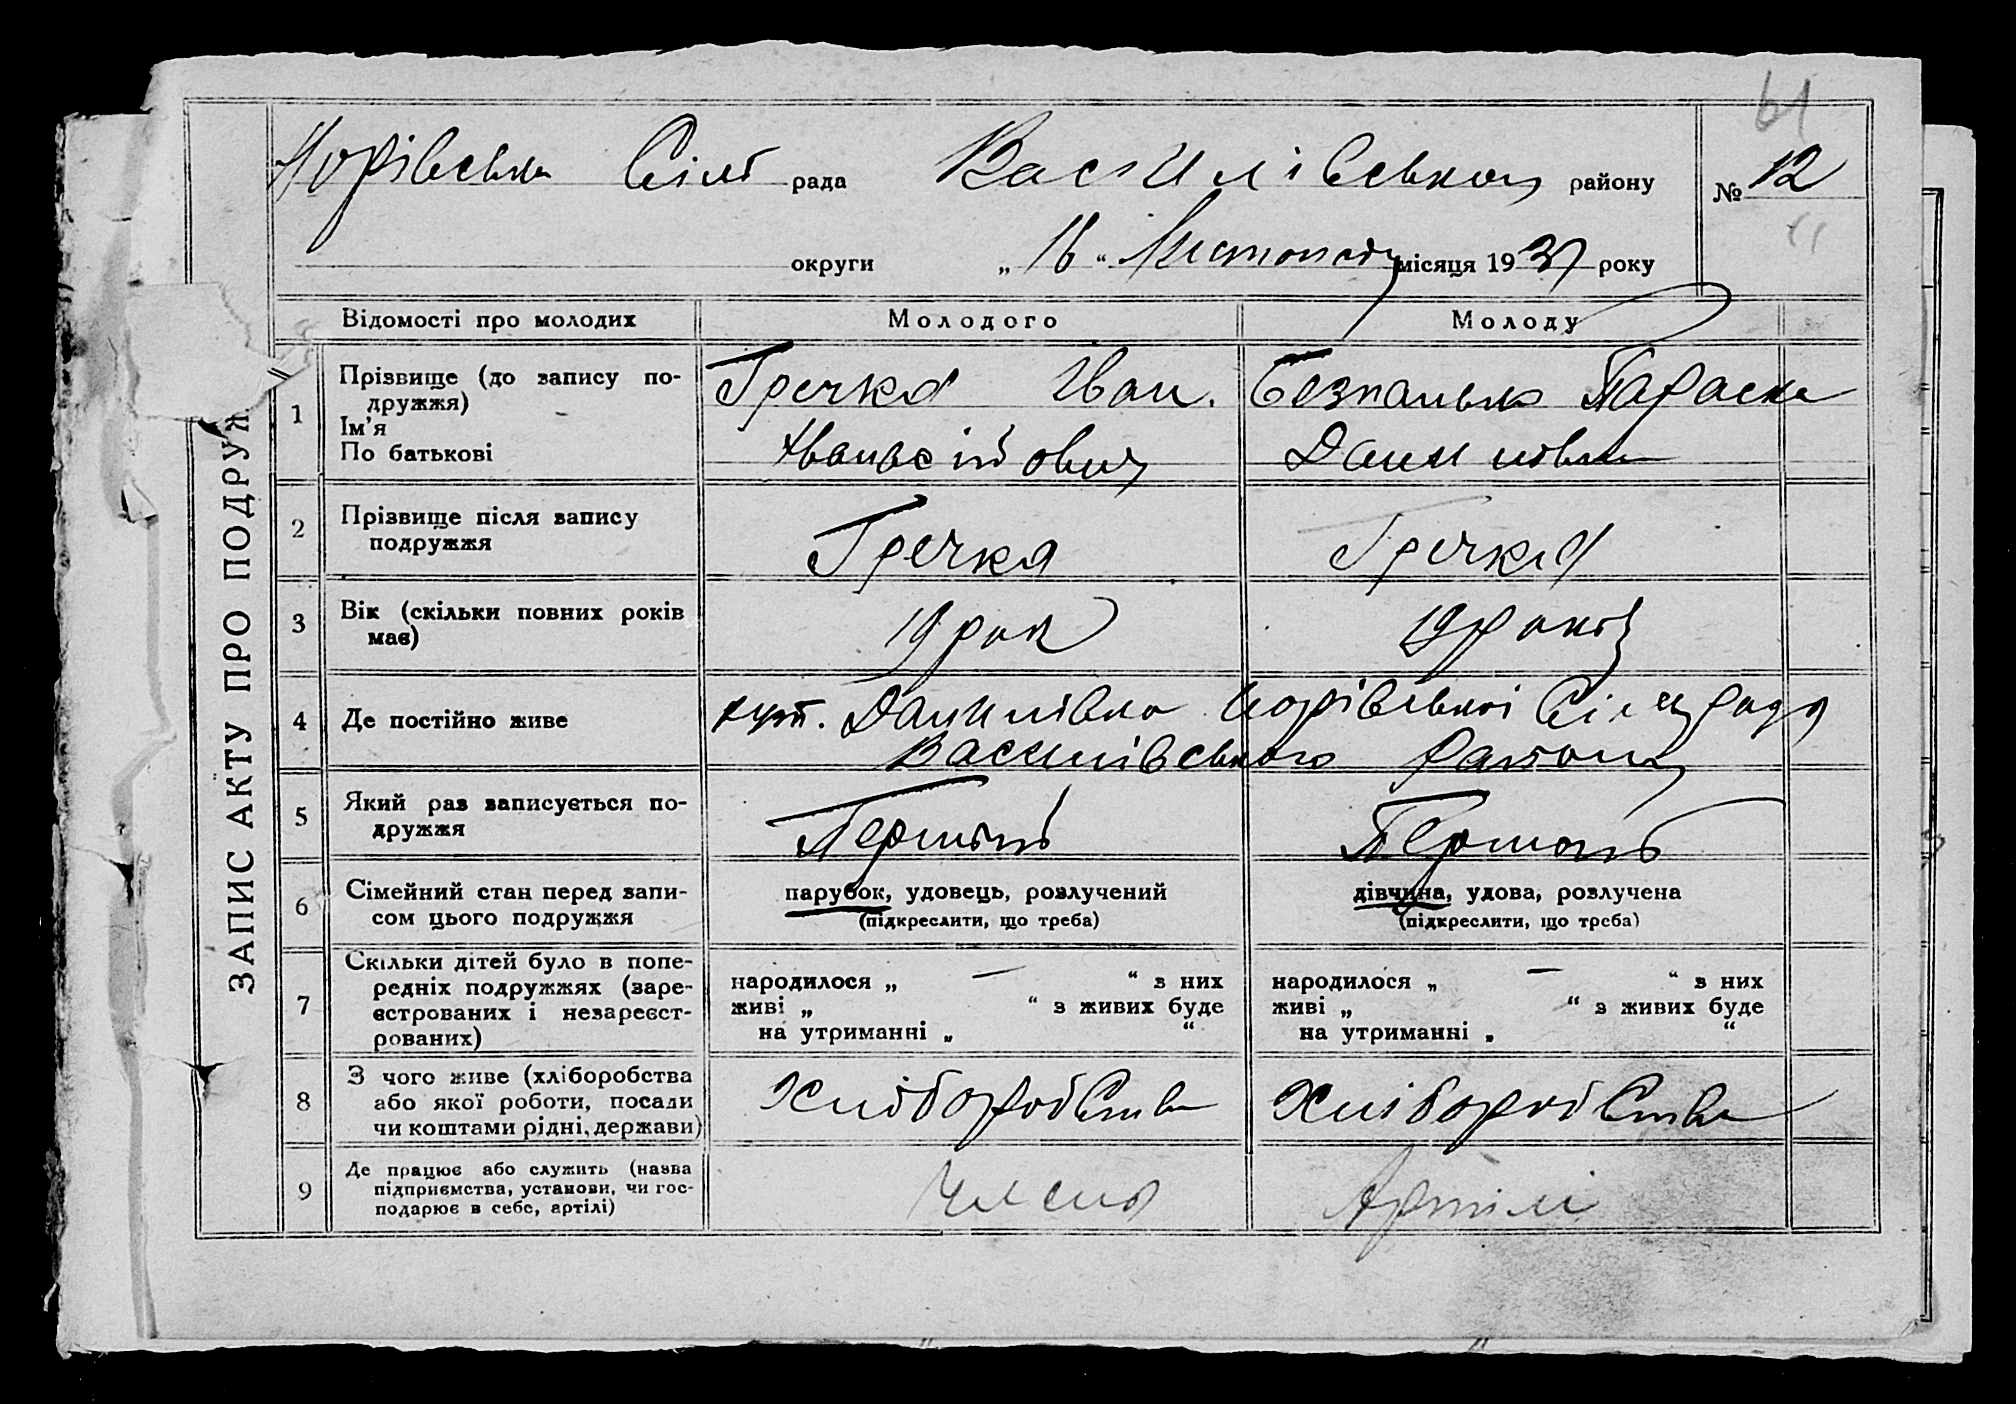 61
Норівська Сіль рада Василівського району № 12
округи „ 16 “ Листопаду місяця 19 31 року
ЗАПИС АКТУ ПРО ПОДРУЖ
Відомості про молодих Молодого Молоду
1 Прізвище (до запису по-
дружжя)
Ім’я
По батькові
Гречка Іван.
Безпалько Параска
Данилівна
2 Прізвище після запису
подружжя
Гречка Гречка
3 Вік (скільки повних років
має)
19 рок 19 років
4 Де постійно живе
хут. Данилівка Норівської Сільради
Василівського району
5 Який раз записується по-
дружжя
Перший Перший
6 Сімейний стан перед запи-
сом цього подружжя
парубок, удовець, розлучений
(підкреслити, що треба)
дівчина, удова, розлучена
(підкреслити, що треба)
7 Скільки дітей було в попе-
редніх подружжях (заре-
єстрованих і незареєст-
рованих)
народилося „ — “ з них
живі „ “ з живих буде
на утриманні „ “
народилося „ — “ з них
живі „ “ з живих буде
на утриманні „ “
8 З чого живе (хліборобства
або якої роботи, посади
чи коштами рідні, держави)
Хліборобства Хліборобства
9 Де працює або служить (назва
підприємства, установи, чи гос-
подарює в себе, артілі)
Члени Артілі